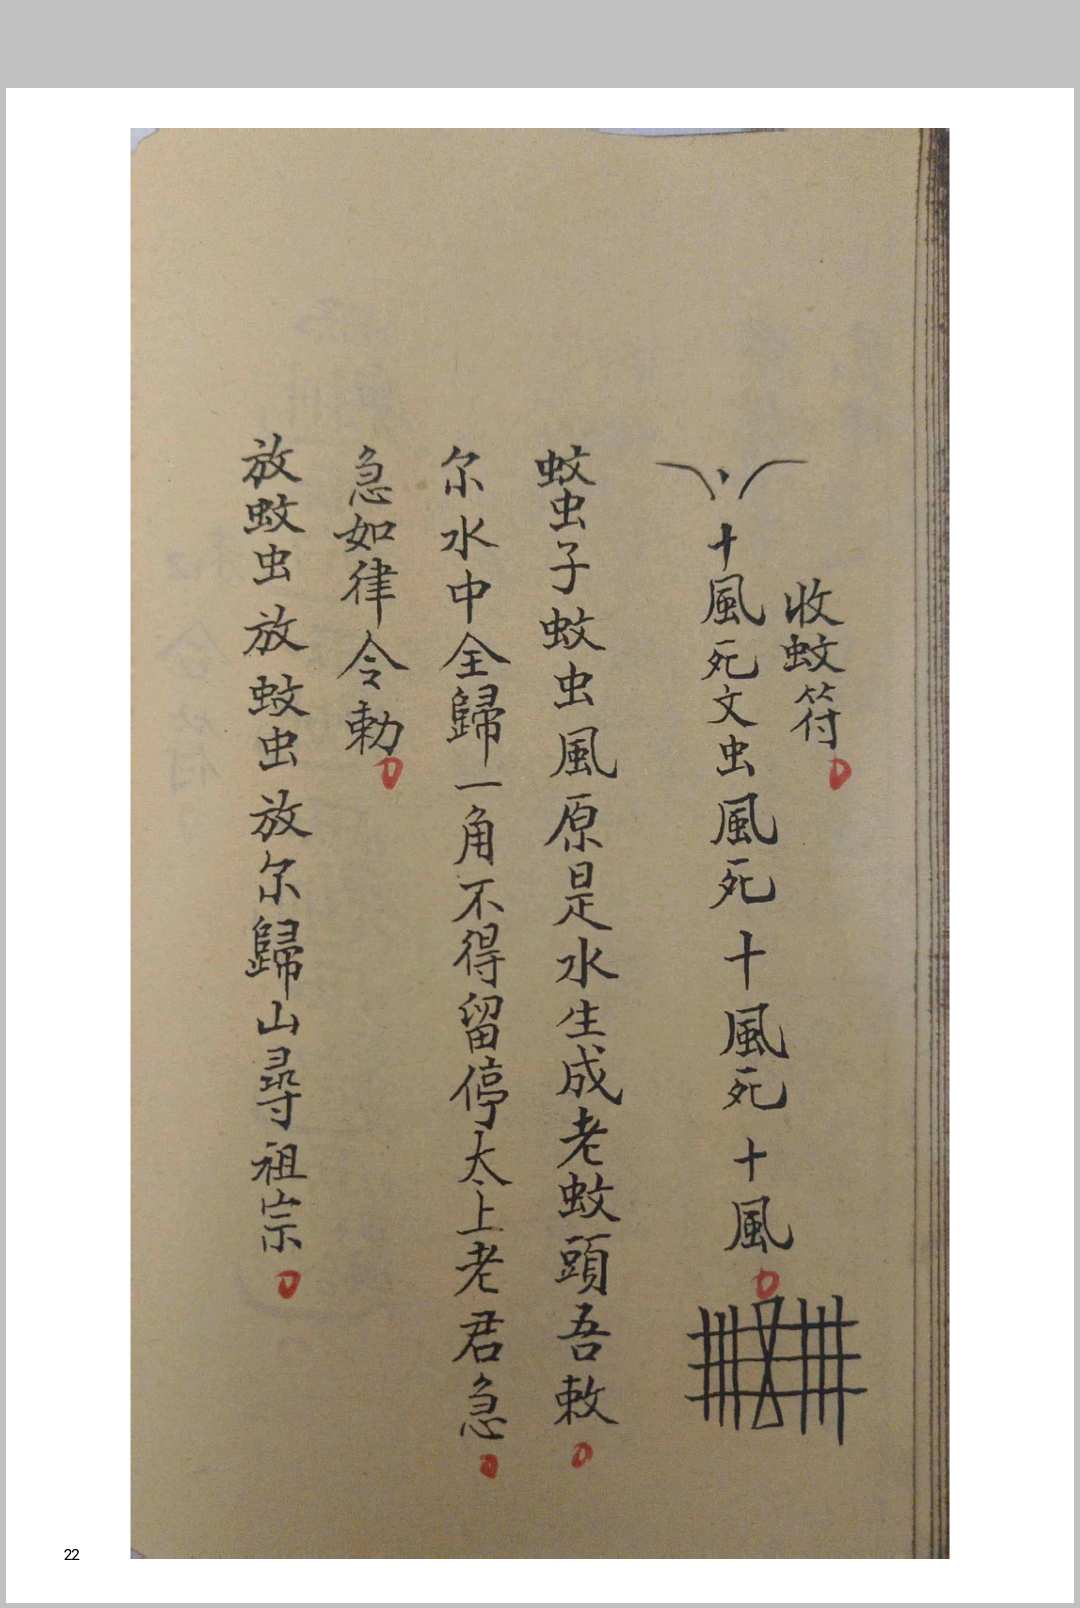 收蚊符
十風死文虫風死十風死十風
蚊虫子蚊虫風原是水生成老蚊頭吾敕
尔水中全歸一角不得留停太上老君急
急如律令勅
放蚊虫放蚊虫放尔歸山尋祖宗
22